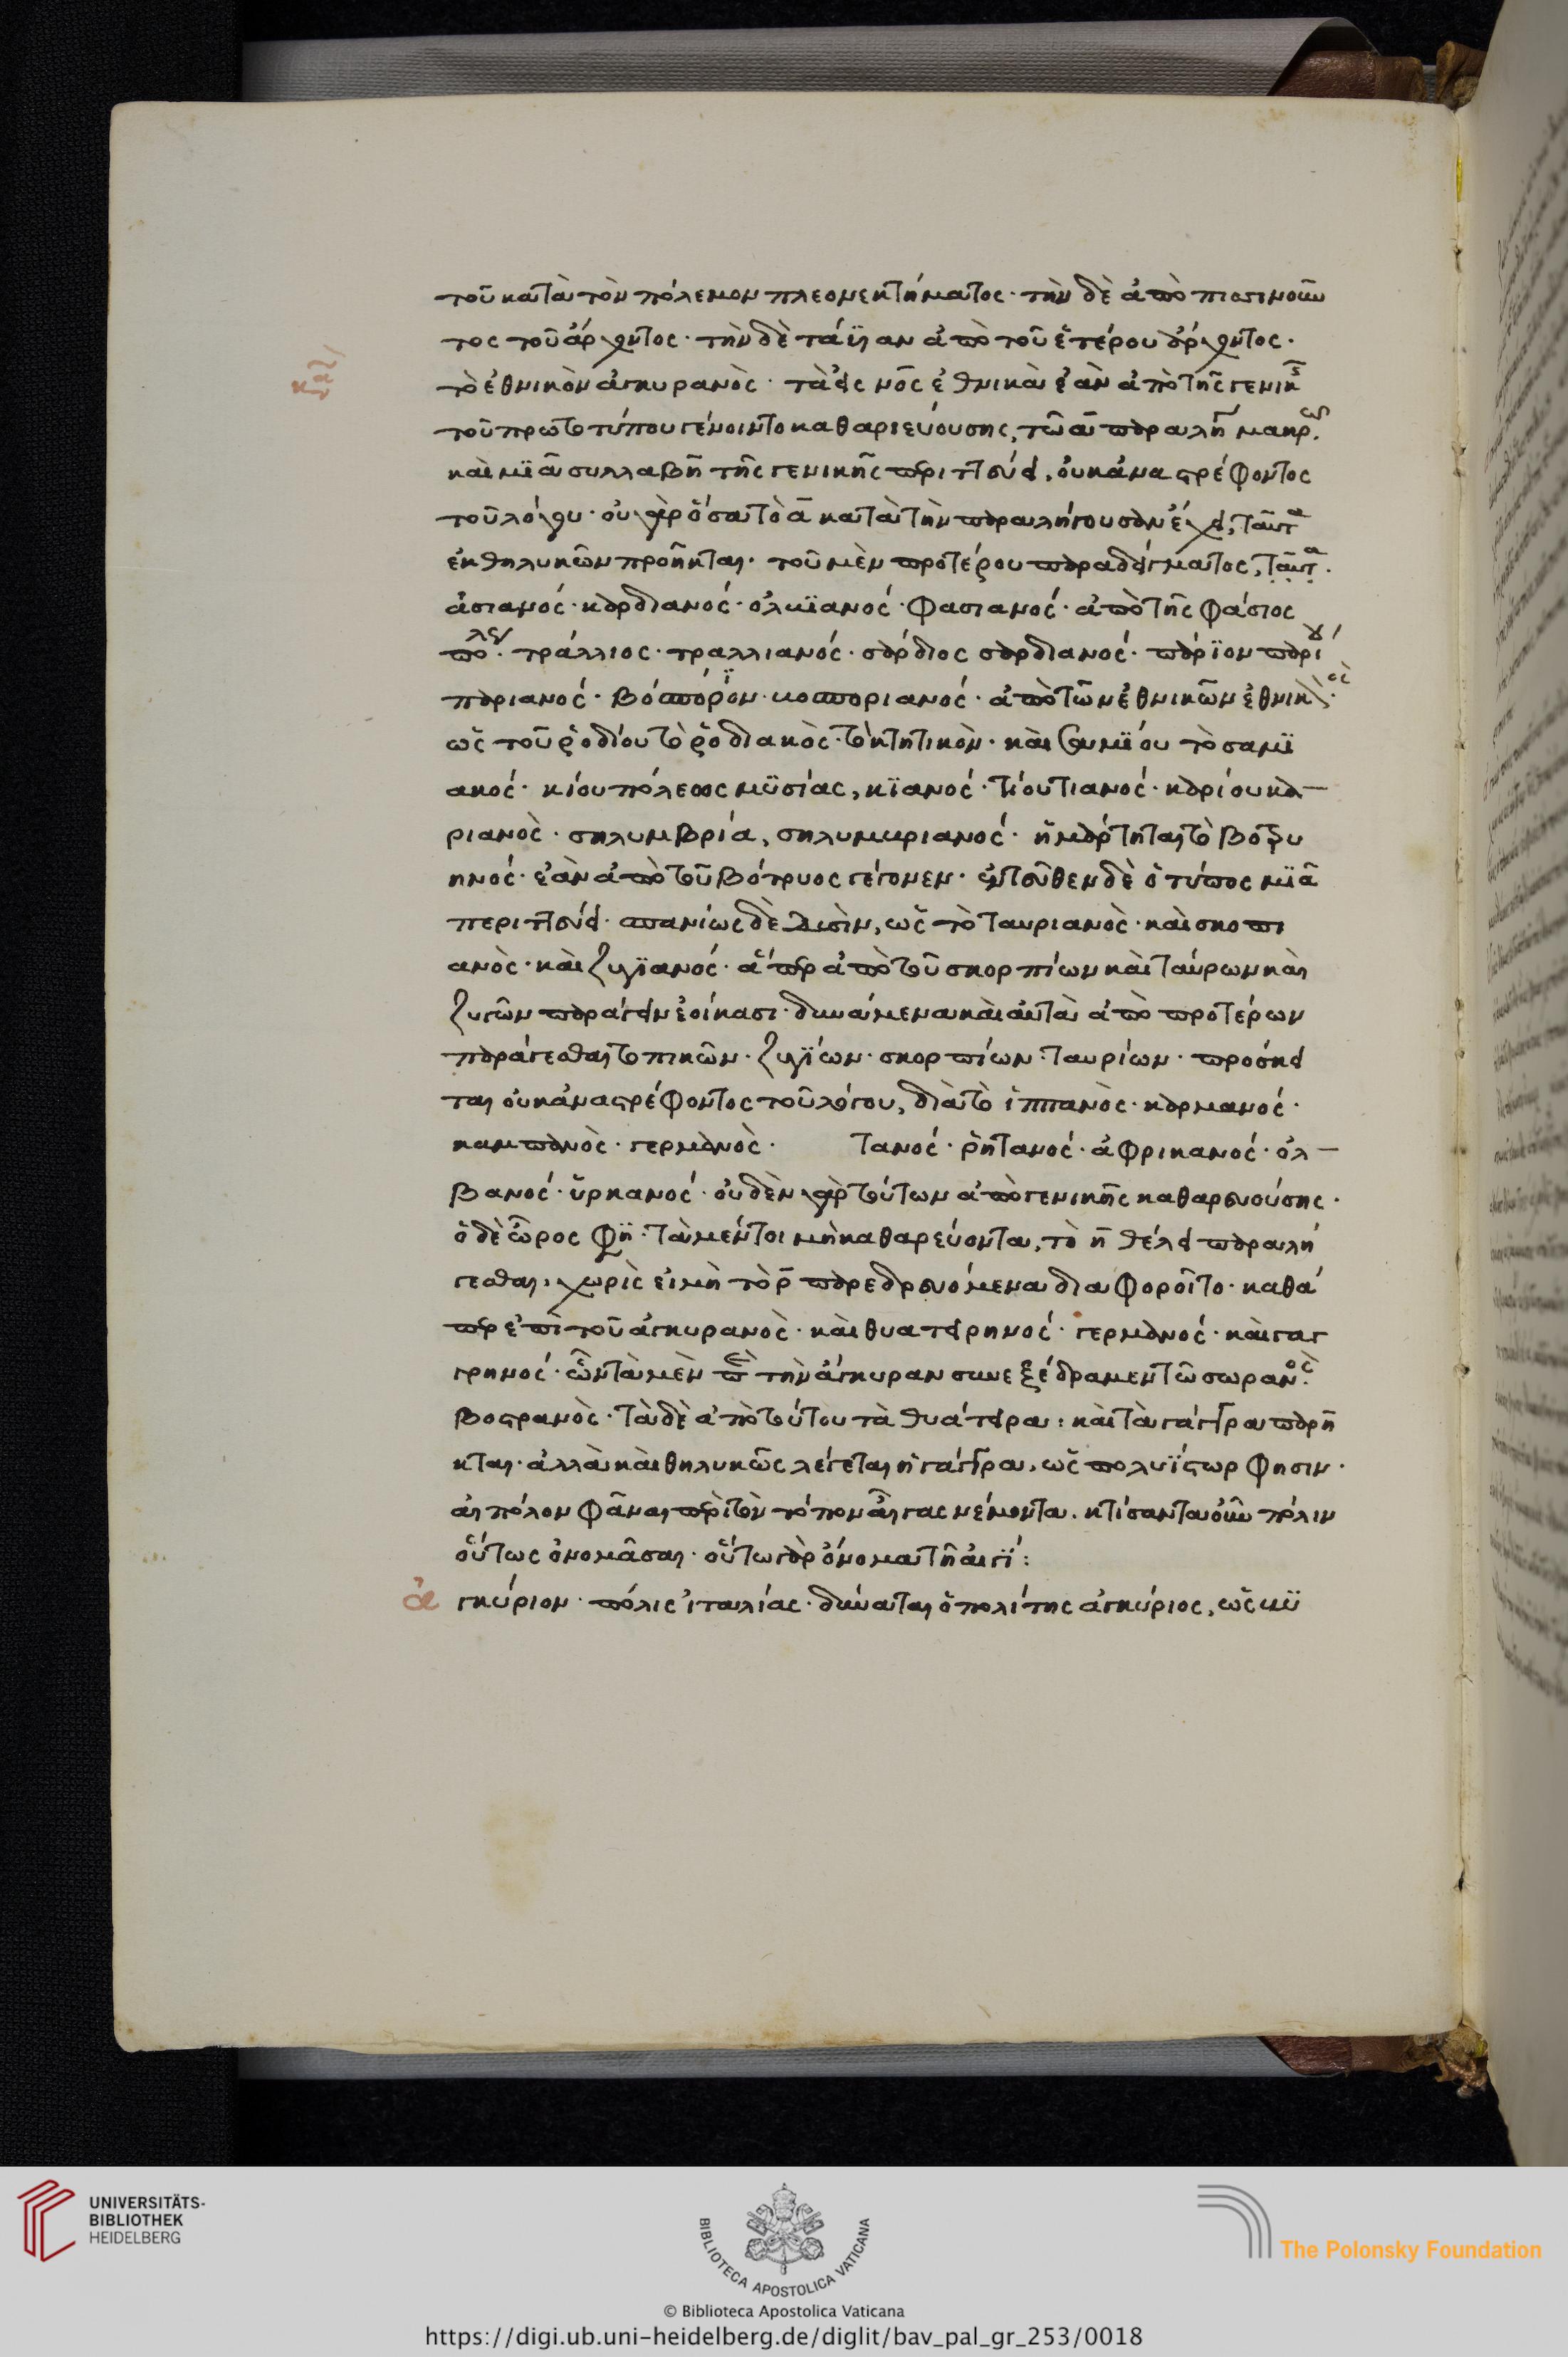 τοῦ κατὰ τὸν πόλεμον πλεονεκτήματος· τὴν δὲ ἀπὸ
τος τοῦ ἄρχοντος· τὴν δὲ ἀπὸ τοῦ ἑτέρου ἄρχοντος·
τὸ ἐθνικὸν ἀγκυρανὸς· τὰ εἰς νὸς ἐθνικὰ ἐὰν ἀπὸ τῆς γενικῆς
τοῦ πρωτοτύπου γένοιντο καθαριευούσης, τῶ ᾱ παραλή μακρῶ.
καὶ μϊᾶ συλλαβῆ τῆς γενικῆς περιττεύει, οὐκ ἀναστρέφοντος
τοῦ λόγου· οὐ γὰρ ὅσα τὸ ᾱ κατὰ τὴν παραλήγουσαν ἔχει, ταῦτα
ἐκ θηλυκῶν προῆκται· τοῦ μὲν προτέρου παραδείγματος, ταῦτα.
ἀσιανός· καρδιανός· ὀλκϊανός· φασιανός· ἀπὸ τῆς φάσιος
πόλεως· τράλλιος· τραλλιανός· σάρδιος σαρδιανός· πάρϊον παρί
παριανός· βόσπόρϊον· κοσποριανός· ἀπὸ τῶν ἐθνικῶν ἐθνικὸς·
ὡς τοῦ ῥοδίου τὸ ῥοδιακὸς· τὸ κτητικὸν· καὶ σαμϊου τὸ σαμϊ
ακός· κίου πόλεως μϋσίας, κϊανός· τίου τιανός· καρίου κα
ριανὸς· σηλυμβρία, σηλυμκριανός· ἡμάρτηται τὸ βοτρυ
ηνός· ἐὰν ἀπὸ τοῦ βότρυος γέγονεν· ἐντεῦθεν δὲ ὁ τύπος μϊᾶ
περιττεύει· σπανίως δὲ δυσὶν, ὡς τὸ ταυριανὸς· καὶ σκοπι
ανὸς· καὶ ζυγϊανός· ἅπερ ἀπὸ τοῦ σκορπίων καὶ ταύρων καὶ
ζυγῶν παράγειν ἐοίκασι· δυνάμενα καὶ αὐτὰ ἀπὸ προτέρων
παράγεσθαι τοπικῶν· ζυγϊων· σκορπίων· ταυρίων· πρόσκει
ται οὐκ ἀναστρέφοντος τοῦ λόγου, διὰ τὸ ἱππανὸς· καρμανός·
καμπανὸς· γερμανὸς· τανός· ῥητανός· ἀφρικανός· ἀλ
βανός· ὑρκανός· οὐδὲν γὰρ τούτων ἀπὸ γενικῆς καθαρευούσης·
ὁ δὲ ὦρος φη· τὰ μέντοι μὴ καθαρεύοντα, τὸ η̄ θέλει παραλή
γεσθαι, χωρὶς εἰ μὴ τὸ ρ̄ παρεδρευόμενα διαφοροῖτο· καθά
περ ἐπὶ τοῦ ἀγκυρανὸς· καὶ θυατειρηνός· γερμανός· καὶ γαγ
γρηνός· ὧν τὰ μὲν περὶ τὴν ἄγκυραν συνεξέδραμεν τῶ σωρανὸς·
βοστρανὸς· τὰ δὲ ἀπὸ τούτου τὰ θυάτειρα· καὶ τὰ γάγγρα παρῆ
κται· ἀλλὰ καὶ θηλυκῶς λέγεται ἡ γάγγρα, ὡς πολυϊστωρ φησιν·
αἰπόλον φᾶναι περὶ τὸν τόπον αἶγας νέμοντα, κτίσαντα οὖν πόλιν
οὕτως ὀνομᾶσαι· οὕτω γὰρ ὄνομα τῆ αἰγϊ:
ἀγκύριον· πόλις ἰταλίας· δύναται ὁ πολίτης ἀγκύριος, ὡς κϋ
UNIVERSITÄTS-
BIBLIOTHEK
HEIDELBERG
BIBLIOTECA APOSTOLICA VATICANA
The Polonsky Foundation
© Biblioteca Apostolica Vaticana
https://digi.ub.uni-heidelberg.de/diglit/bav_pal_gr_253/0018